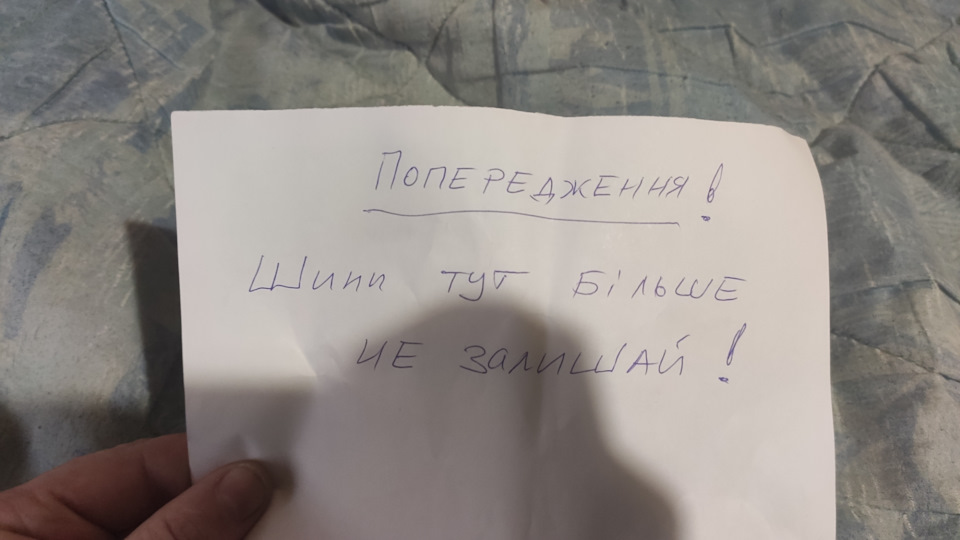 ПОПЕРЕДЖЕННЯ!
Шини тут більше
не залишай!